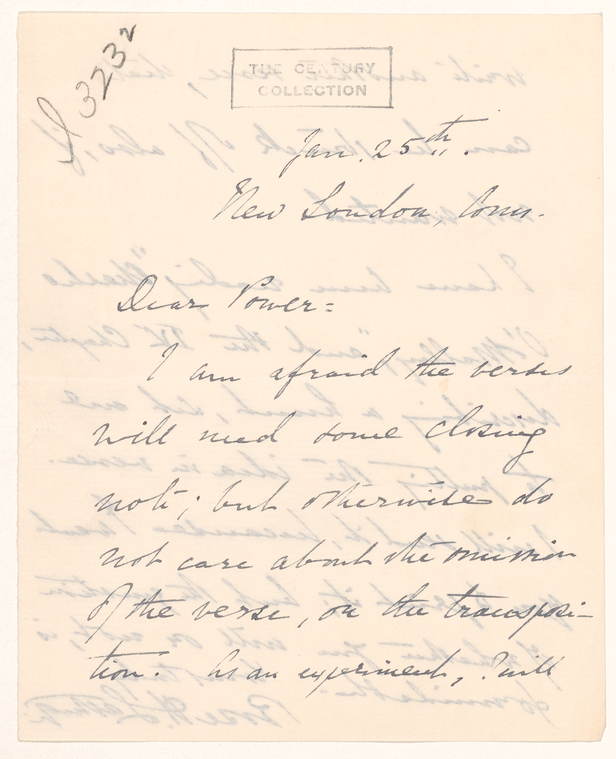 3232
THE CENTURY
COLLECTION
Jan. 25th.
New London, Conn.
Dear Power:
I am afraid the verses
will need some closing
note; but otherwise do
not care about the omission
of the verse, or the transposi-
tion. As an experiment, I will